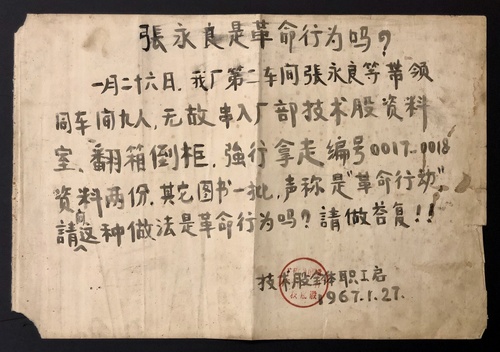 張永良是革命行为吗？
一月二十六日，我厂第二车间張永良等带领
同车间九人，无故串入厂部技术股资料
室，翻箱倒柜，強行拿走编号0017-0018
资料两份，其它图书一批，声称是“革命行动”。
請问这种做法是革命行为吗？請做荅复！！
技术股全体职工启
1967.1.27.